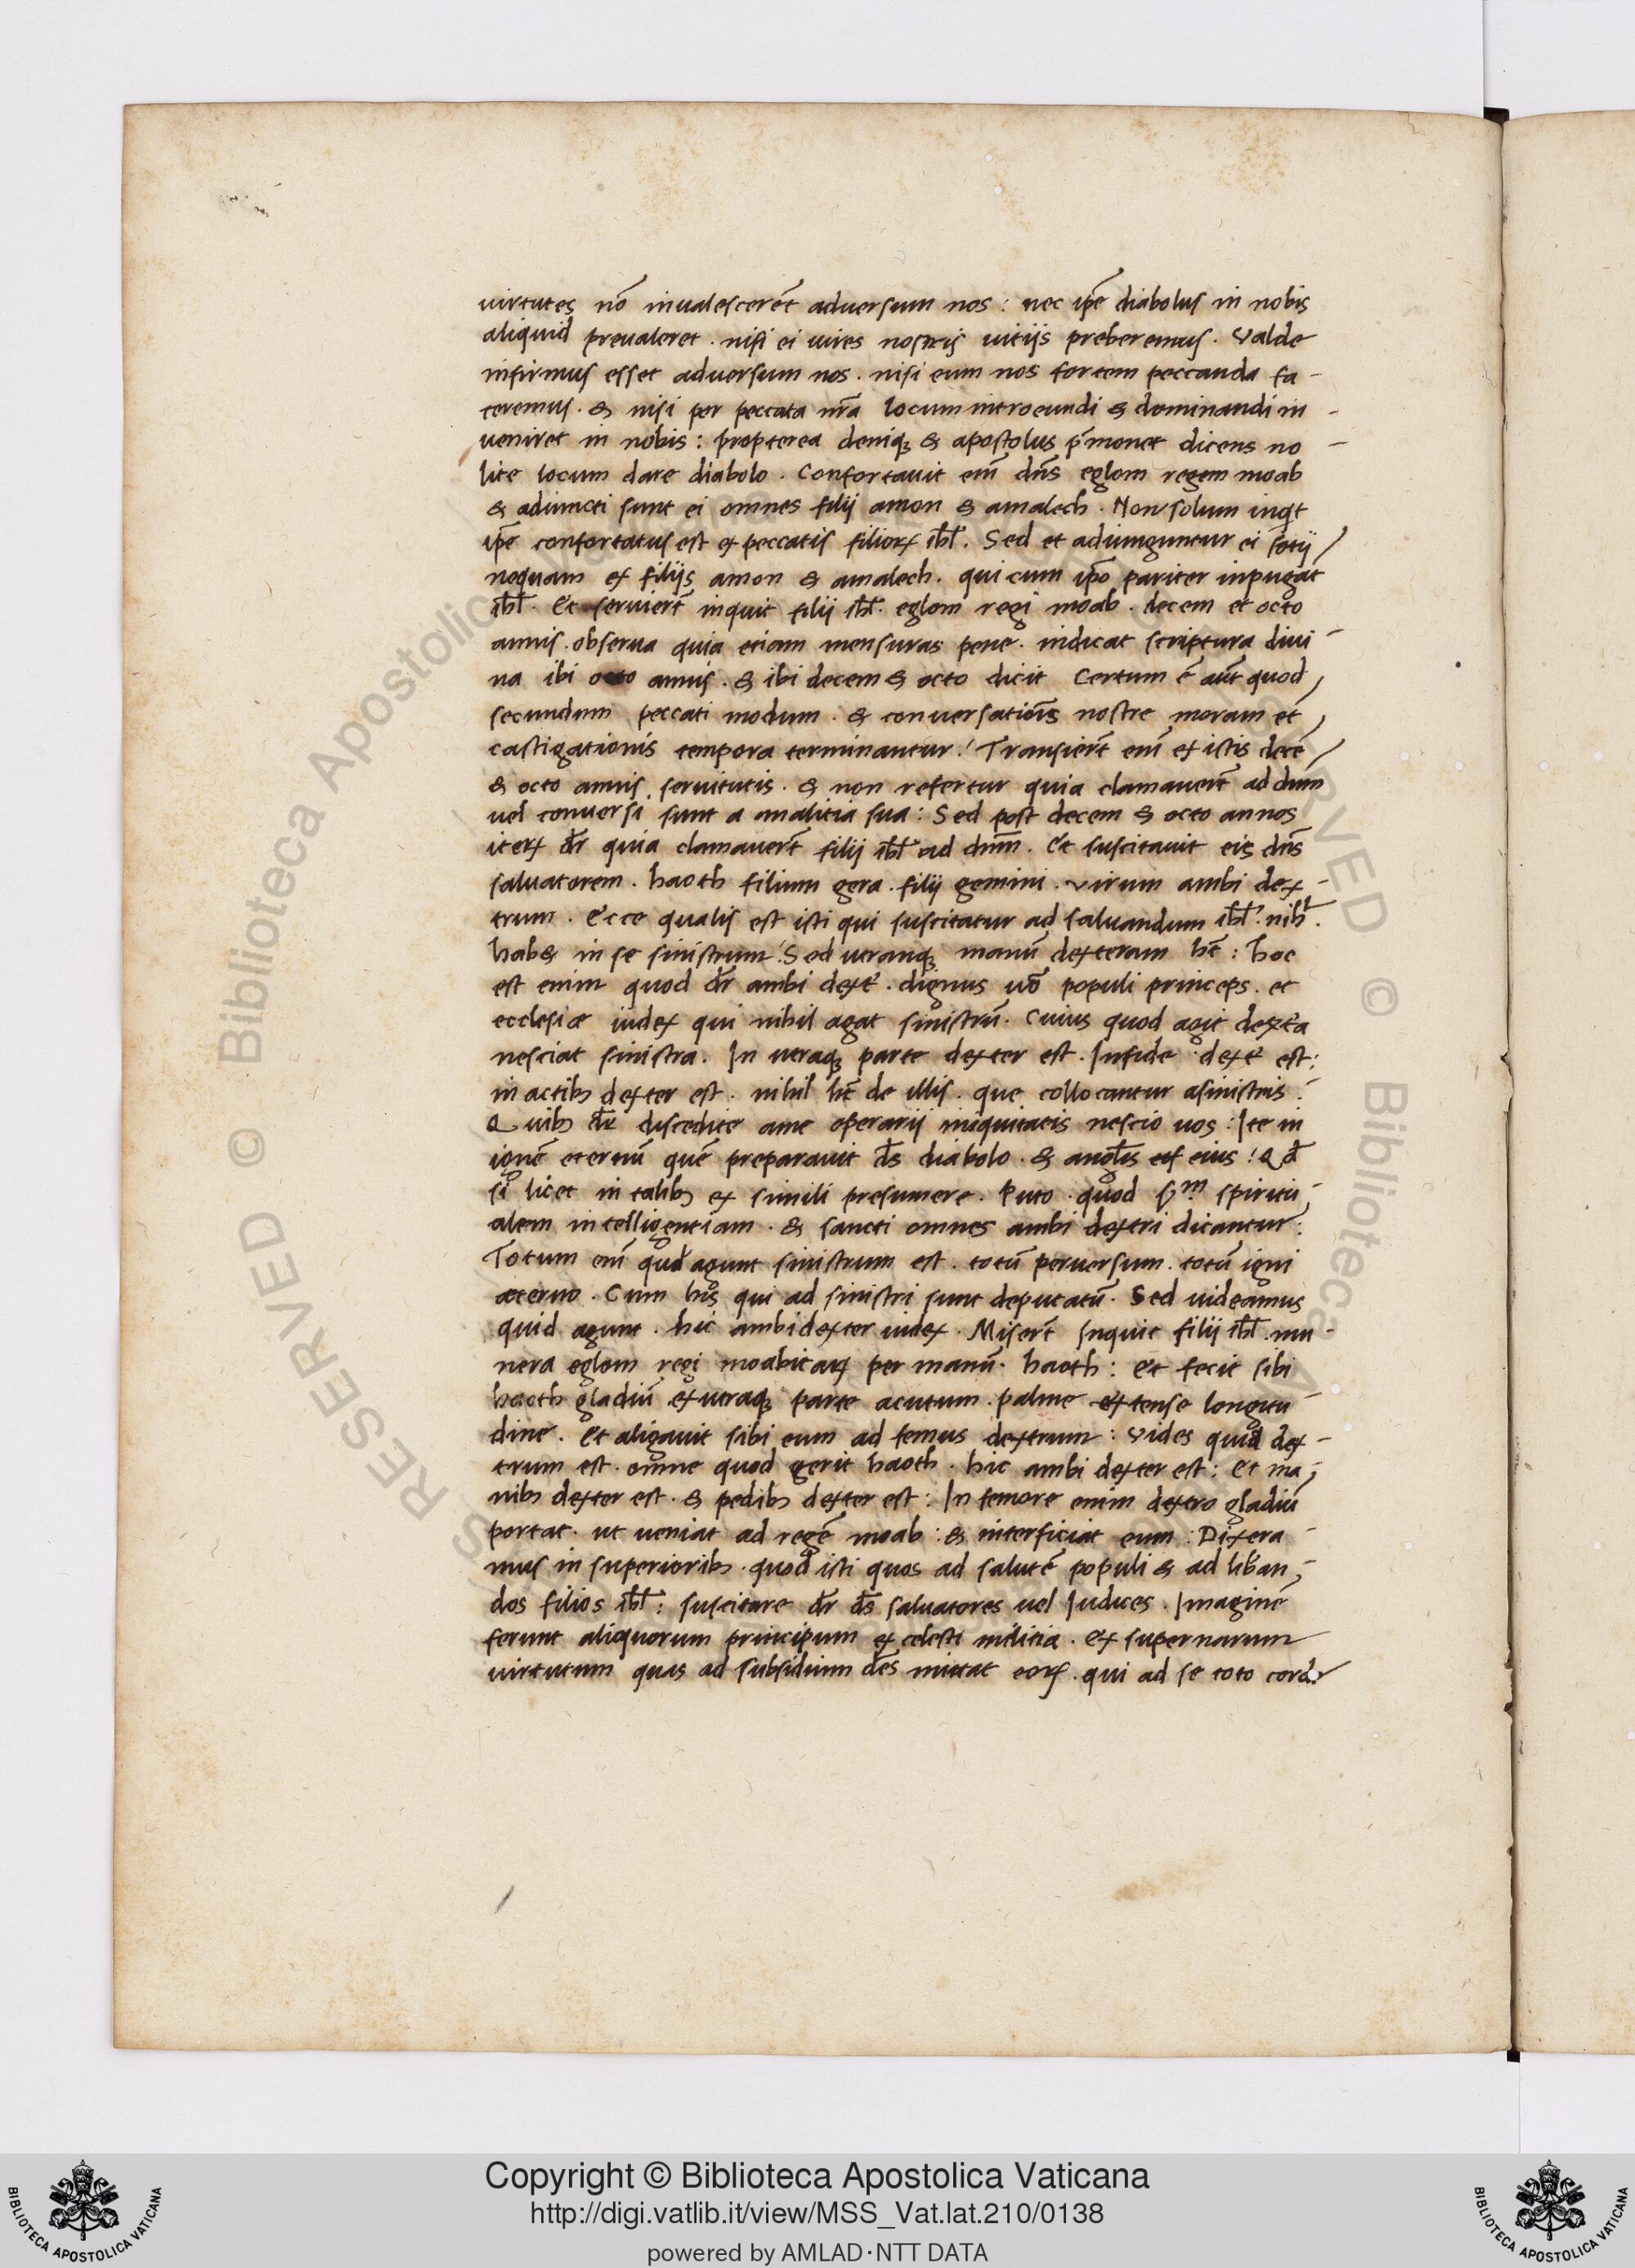 virtutes nō inualescerēt aduersum nos : nec ip̄e diabolus in nobis
aliquid preualeret . nisi ei uires nostris uitijs preberemus . Valde
infirmus esset aduersum nos . nisi eum nos fortem peccanda fa-
ceremus . & nisi per peccata nr̄a locum introeundi & dominandi in-
ueniret in nobis : propterea deniqꝫ & apostolus p̄monet dicens no-
lite locum dare diabolo . Confortauit em̄ dn̄s eglom regem moab
& adiuncti sunt ei omnes filij amon & amalech . Non solum inqt
ip̄e confortatus est ex peccatis filioꝝ isr̄l . Sed et adiunguntur ei sotij
nequam ex filijs amon & amalech . qui cum ip̄o pariter inpugāt
isr̄l . Et seruiert̄ inquit filij isr̄l . eglom regi moab . decem et octo
annis . obserua quia etiam mensuras pene . indicat scriptura diui-
na ibi octo annis . & ibi decem & octo dicit Certum ē aut̄ quod
secundum peccati modum . & conuersatiōis nostre moram et
castigationis tempora terminantur ! Transiert̄ em̄ ex istis decē
& octo annis seruitutis . & non refertur quia clamauert̄ ad dnm̄
uel conuersi sunt a malitia sua : Sed post decem & octo annos
iteꝝ dr̄ quia clamauert̄ filij isr̄l ad dnm̄ . Et suscitauit eis dn̄s
saluatorem . haoth filium gera . filij gemini . virum ambi dex-
trum . Ecce qualis est isti qui suscitatur ad saluandum isr̄l . nihl̄ .
hab& in se sinistrum ! Sed utranqꝫ manū dexteram ht̄ : hoc
est enim quod dr̄ ambi dext̄ . dignus uō populi princeps . et
ecclesiæ iudex qui nihil agat sinistrū . Cuius quod agit dext̄a
nesciat sinistra . In utraqꝫ parte dexter est . Infide dext̄ est :
in actibꝫ dexter est . nihil ht̄ de illis . que collocantur asinistris :
Quibꝫ dr̄ discedite ame operarij iniquitatis nescio uos : Ite in
ignē eternū quē preparauit ds̄ diabolo . & angl̄is eius ! Qd̄
si licet in talibꝫ ex simili presumere . Puto . quod s̄m spiritu-
alem intelligentiam . & sancti omnes ambi dextri dicantur :
Totum em̄ qud̄ agunt sinistrum est . totū peruersum . totū igni
æterno . Cum his qui ad sinistri sunt deputatū . Sed uideamus
quid agunt . hic ambidexter iudex . Misert̄ Inquit filij isr̄l . mu-
nera eglom regi moabitaꝝ per manū . haoth : Et fecit sibi
haoth gladiū exutraqꝫ parte acutum . palme extense longitu-
dine . Et aligauit sibi eum ad femus dextrum : Vides quia dex-
trum est . omne quod gerit haoth . hic ambi dexter est : Et ma-
nibꝫ dexter est . & pedibꝫ dexter est : In femore enim dextro gladiū
portat . ut ueniat ad regē moab : & interficiat eum : Dixera-
mus in superioribꝫ . quod isti quos ad salutē populi & ad lib̄an-
dos filios isr̄l : suscitare dr̄ ds̄ saluatores uel Iudices . Imaginē
ferunt aliquorum principum ex celesti militia . ex supernarum
uirtutum quas ad subsidium dēs mittat eoꝝ . qui ad se toto corde
RESERVED © Biblioteca Apostolica
Copyright © Biblioteca Apostolica Vaticana
http://digi.vatlib.it/view/MSS_Vat.lat.210/0138
powered by AMLAD·NTT DATA
BIBLIOTECA APOSTOLICA VATICANA
BIBLIOTECA APOSTOLICA VATICANA